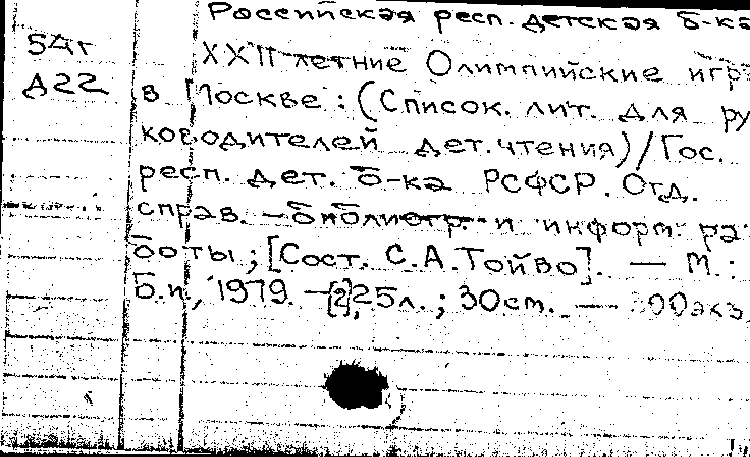 Российская респ. детская б-ка
54г
XXII летние Олимпийские игр
Д22
в Москве : (Список. лит. для ру
ководителей дет. чтения) / Гос.
респ. дет. б-ка РСФСР. Отд.
справ. - библиогр. и информ. ра
боты ; [Сост. С.А. Тойво]. — М. :
Б.и., 1979. — [2], 25 л. ; 30 см. — 300 экз